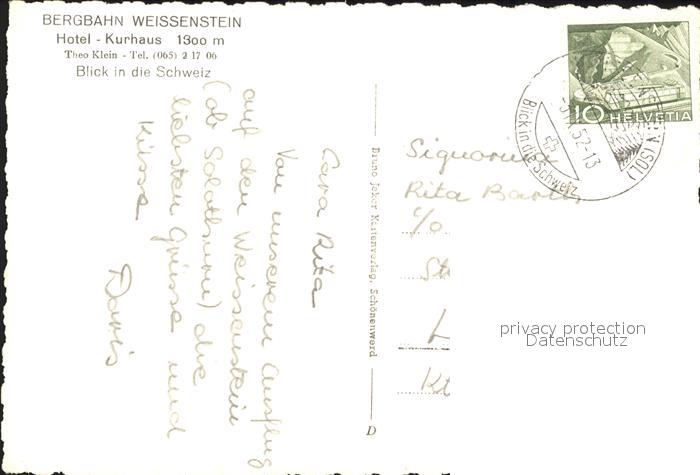 BERGBAHN WEISSENSTEIN
Hotel - Kurhaus 1300 m
Theo Klein - Tel. (065) 2 17 06
Blick in die Schweiz
Cara Rita
Von unserem Ausflug
auf den Weissenstein
(ob Solothurn) die
liebsten Grüsse und
Küsse
Doris
Bruno Jeker Kartenverlag, Schönenwerd
D
10 HELVETIA
52-13
(SOL)
Blick in die Schweiz
Signorina
Rita
c/o
St
L
Kt
privacy protection
Datenschutz